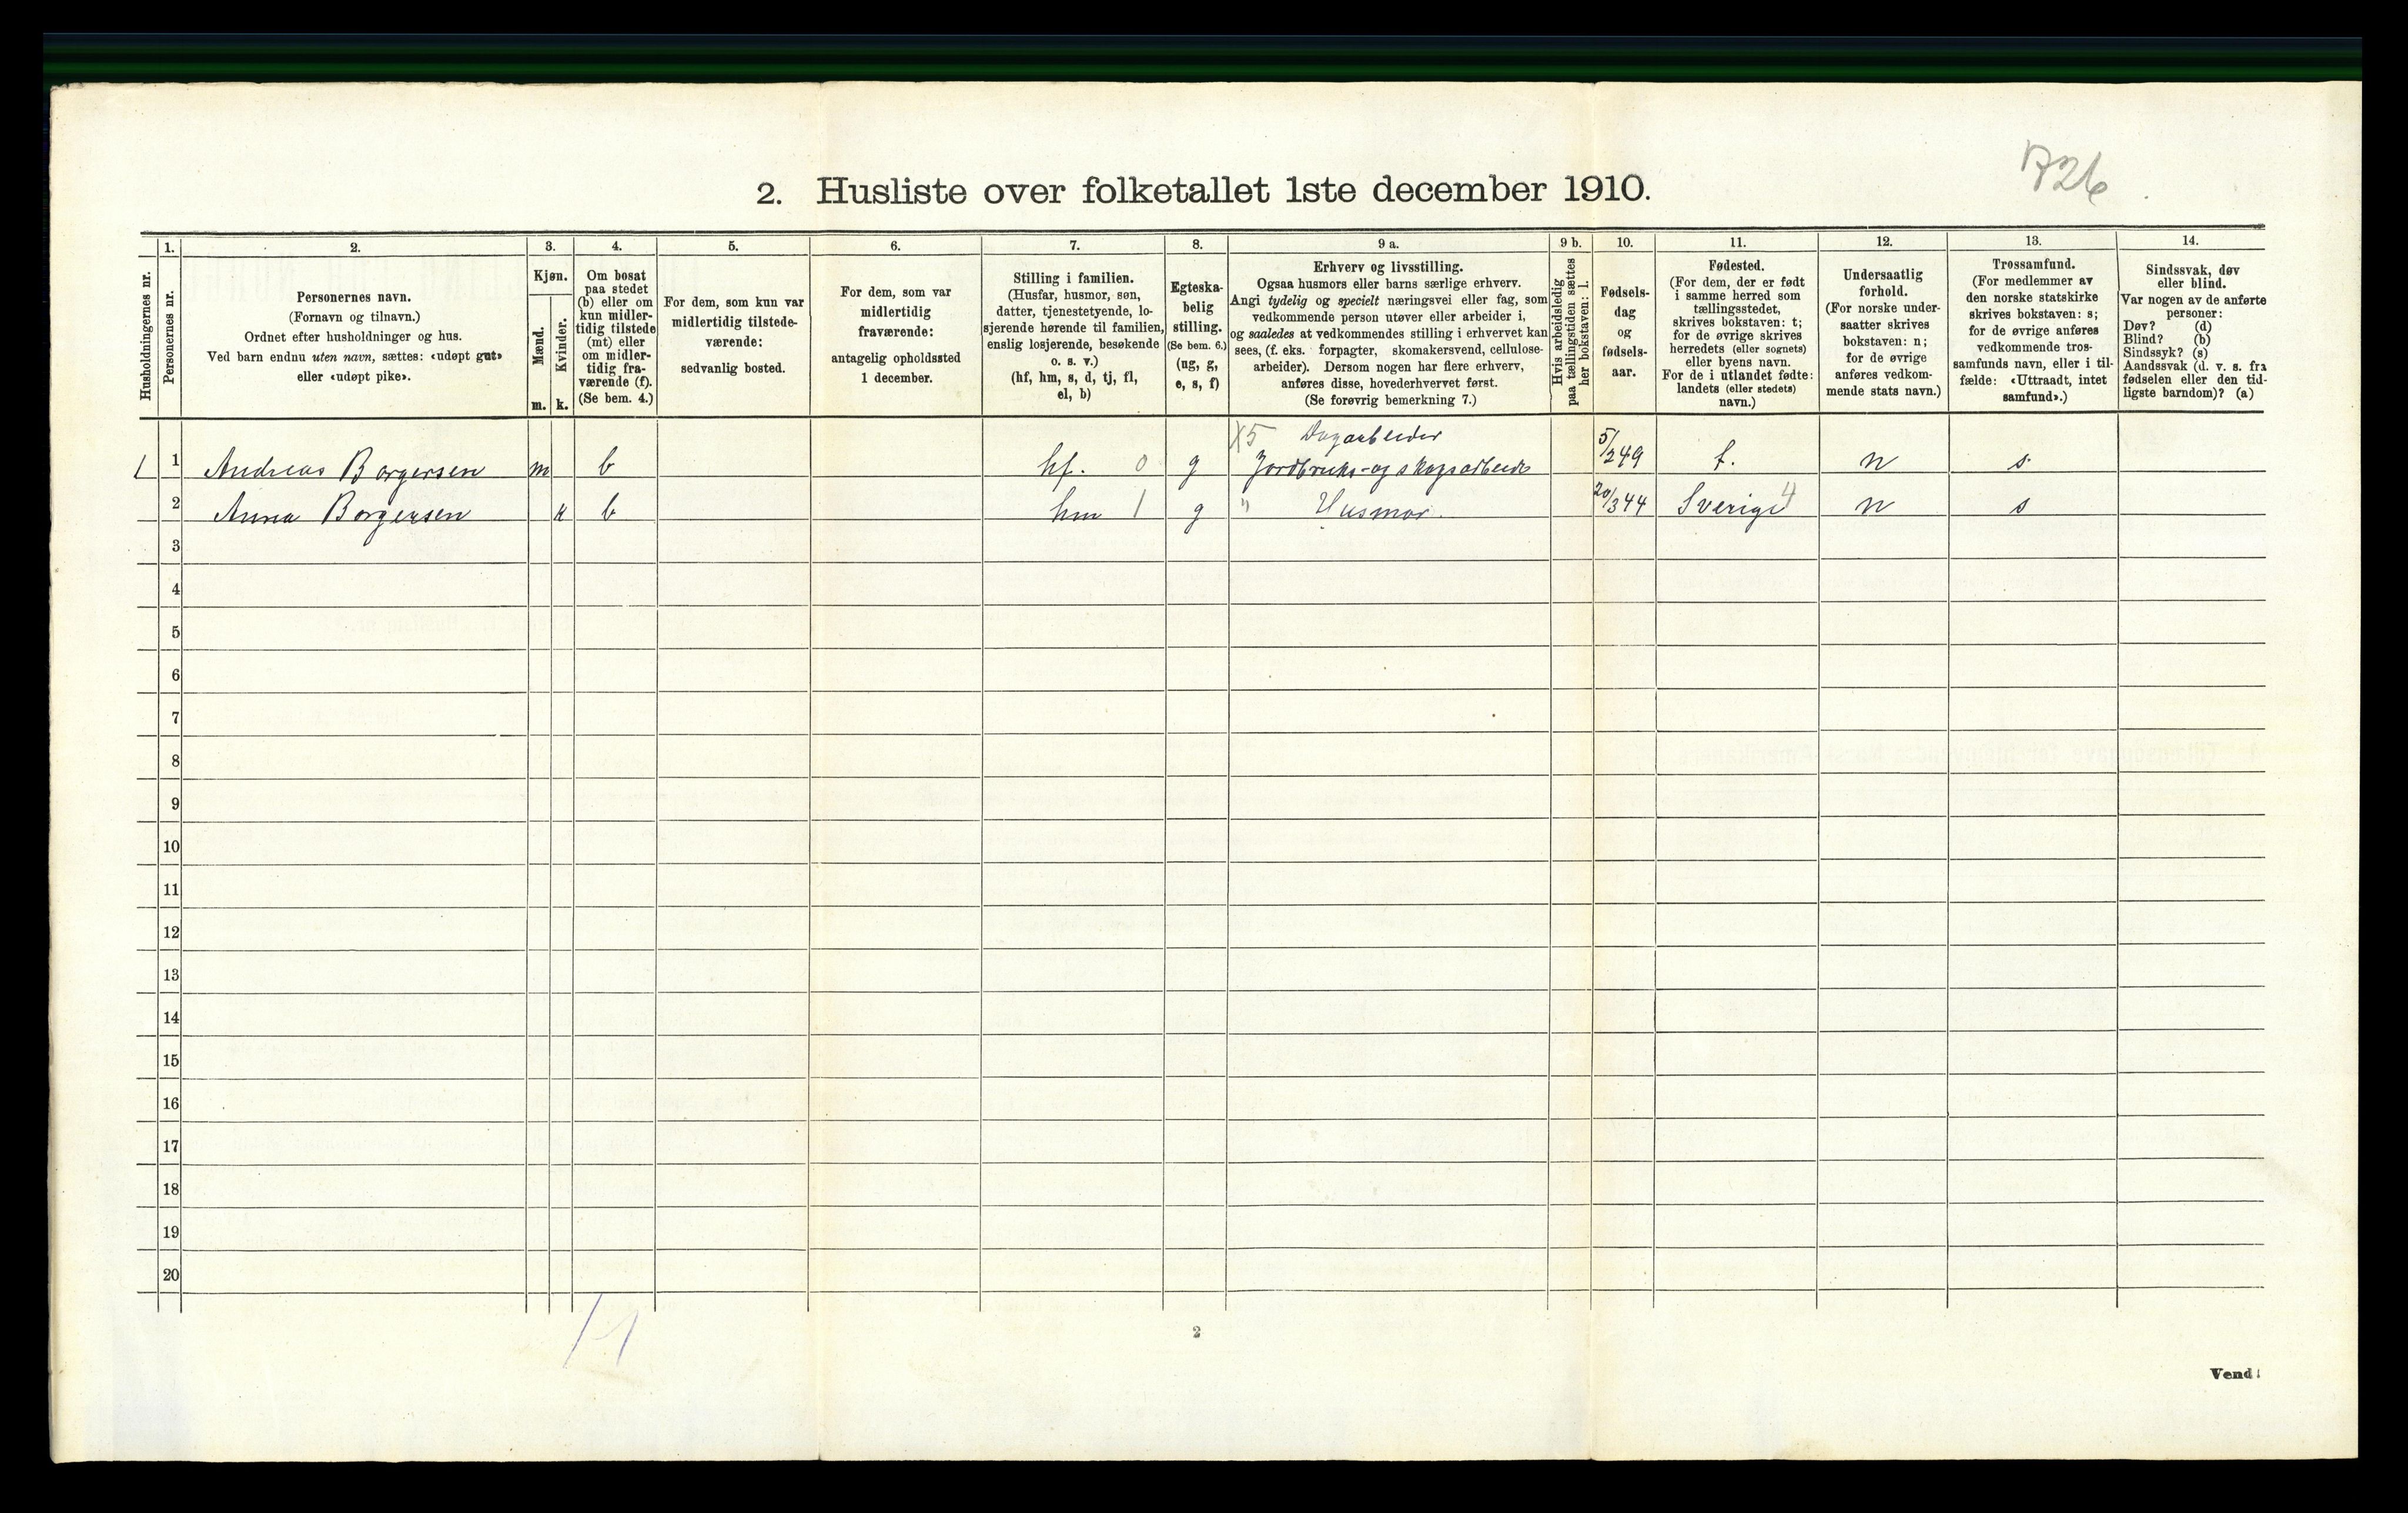 726
2. Husliste over folketallet 1ste december 1910.
Husholdningernes nr.
1.
Personernes nr.
2.
Personernes navn.
(Fornavn og tilnavn.)
Ordnet efter husholdninger og hus.
Ved barn endnu uten navn, sættes: «udøpt gut»
eller «udøpt pike».
3.
Kjøn.
Mænd.
m.
Kvinder.
k.
4.
Om bosat
paa stedet
(b) eller om
kun midler-
tidig tilstede
(mt) eller
om midler-
tidig fra-
værende (f).
(Se bem. 4.)
5.
For dem, som kun var
midlertidig tilstede-
værende:
sedvanlig bosted.
6.
For dem, som var
midlertidig
fraværende:
antagelig opholdssted
1 december.
7.
Stilling i familien.
(Husfar, husmor, søn,
datter, tjenestetyende, lo-
sjerende hørende til familien,
enslig losjerende, besøkende
o. s. v.)
(hf, hm, s, d, tj, fl,
el, b)
8.
Egteska-
belig
stilling.
(Se bem. 6.)
(ug, g,
e, s, f)
9 a.
Erhverv og livsstilling.
Ogsaa husmors eller barns særlige erhverv.
Angi tydelig og specielt næringsvei eller fag, som
vedkommende person utøver eller arbeider i,
og saaledes at vedkommendes stilling i erhvervet kan
sees, (f. eks. forpagter, skomakersvend, cellulose-
arbeider). Dersom nogen har flere erhverv,
anføres disse, hovederhvervet først.
(Se forøvrig bemerkning 7.)
9 b.
Hvis arbeidsledig
paa tællingstiden sættes
her bokstaven: l.
10.
Fødsels-
dag
og
fødsels-
aar.
11.
Fødested.
(For dem, der er født
i samme herred som
tællingsstedet,
skrives bokstaven: t;
for de øvrige skrives
herredets (eller sognets)
eller byens navn.
For de i utlandet fødte:
landets (eller stedets)
navn.)
12.
Undersaatlig
forhold.
(For norske under-
saatter skrives
bokstaven: n;
for de øvrige
anføres vedkom-
mende stats navn.)
13.
Trossamfund.
(For medlemmer av
den norske statskirke
skrives bokstaven: s;
for de øvrige anføres
vedkommende tros-
samfunds navn, eller i til-
fælde: «Uttraadt, intet
samfund».)
14.
Sindssvak, døv
eller blind.
Var nogen av de anførte
personer:
Døv? (d)
Blind? (b)
Sindssyk? (s)
Aandssvak (d. v. s. fra
fødselen eller den tid-
ligste barndom)? (a)
X5 Dagarbeider
1 1 Andreas Borgersen m b hf. 0 g Jordbruks- og skogsarbeide 5/2 49 t. n s
2 Anna Borgersen k b hm 1 g " Husmor. 20/3 44 Sverige 4 n s
3
4
5
6
7
8
9
10
11
12
13
14
15
16
17
18
19
20
1-1
2
Vend!